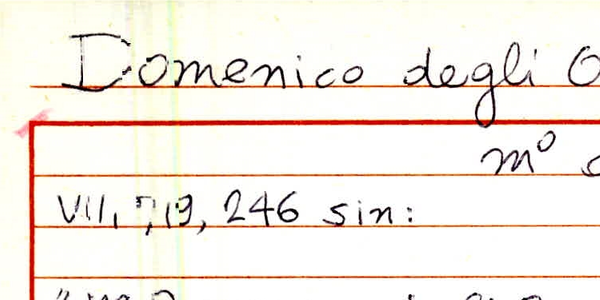 Domenico degli
mº
VII, 7, 19, 246 sin: